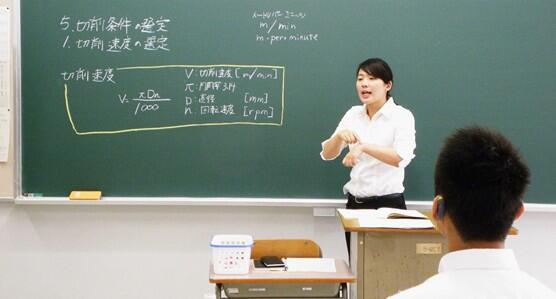 5.切削条件の選定
1.切削速度の選定
メートル パー ミニッツ
m/min
m・per・minute
切削速度
V=πDn/1000
V:切削速度[m/min]
π:円周率3.14
D:直径 [mm]
n:回転速度 [rpm]